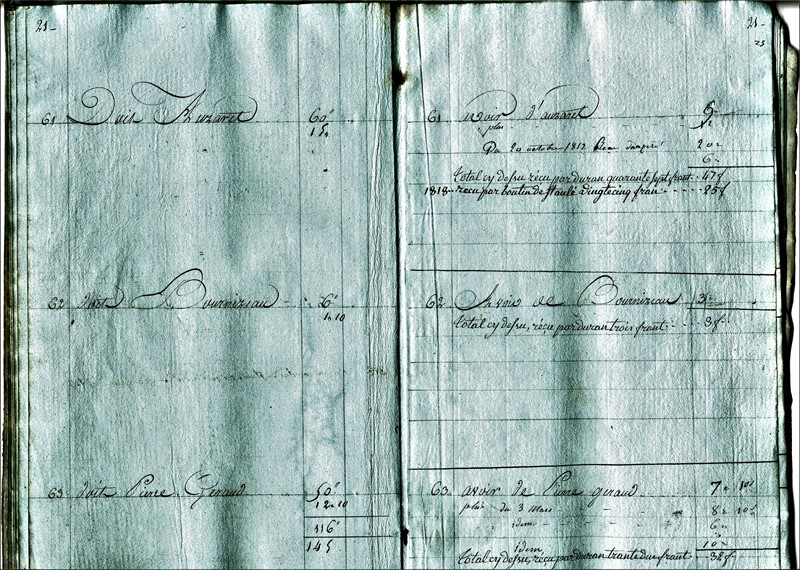 21
61 Doit Auzaret 60
15
62 doit Bournizeau 6
1 10
63 doit Pierre Geraud 50
12 10
116
145
21
25
61 avoir d'auzaret
plus
Du 20 octobre 1812 20
6
total cy desu, récu par duran quarante sept frant 47f
1818 récu par boutin de staule vingtecinq fran 25f
62 Avoir de Bournizeau 3
total cy desu, récu par duran trois frant 3f
63 avoir de Pierre geraud 7 10
plus du 3 mars 8 10
idem 6
idem 10
total cy desu, récu par duran trante due frant 32f